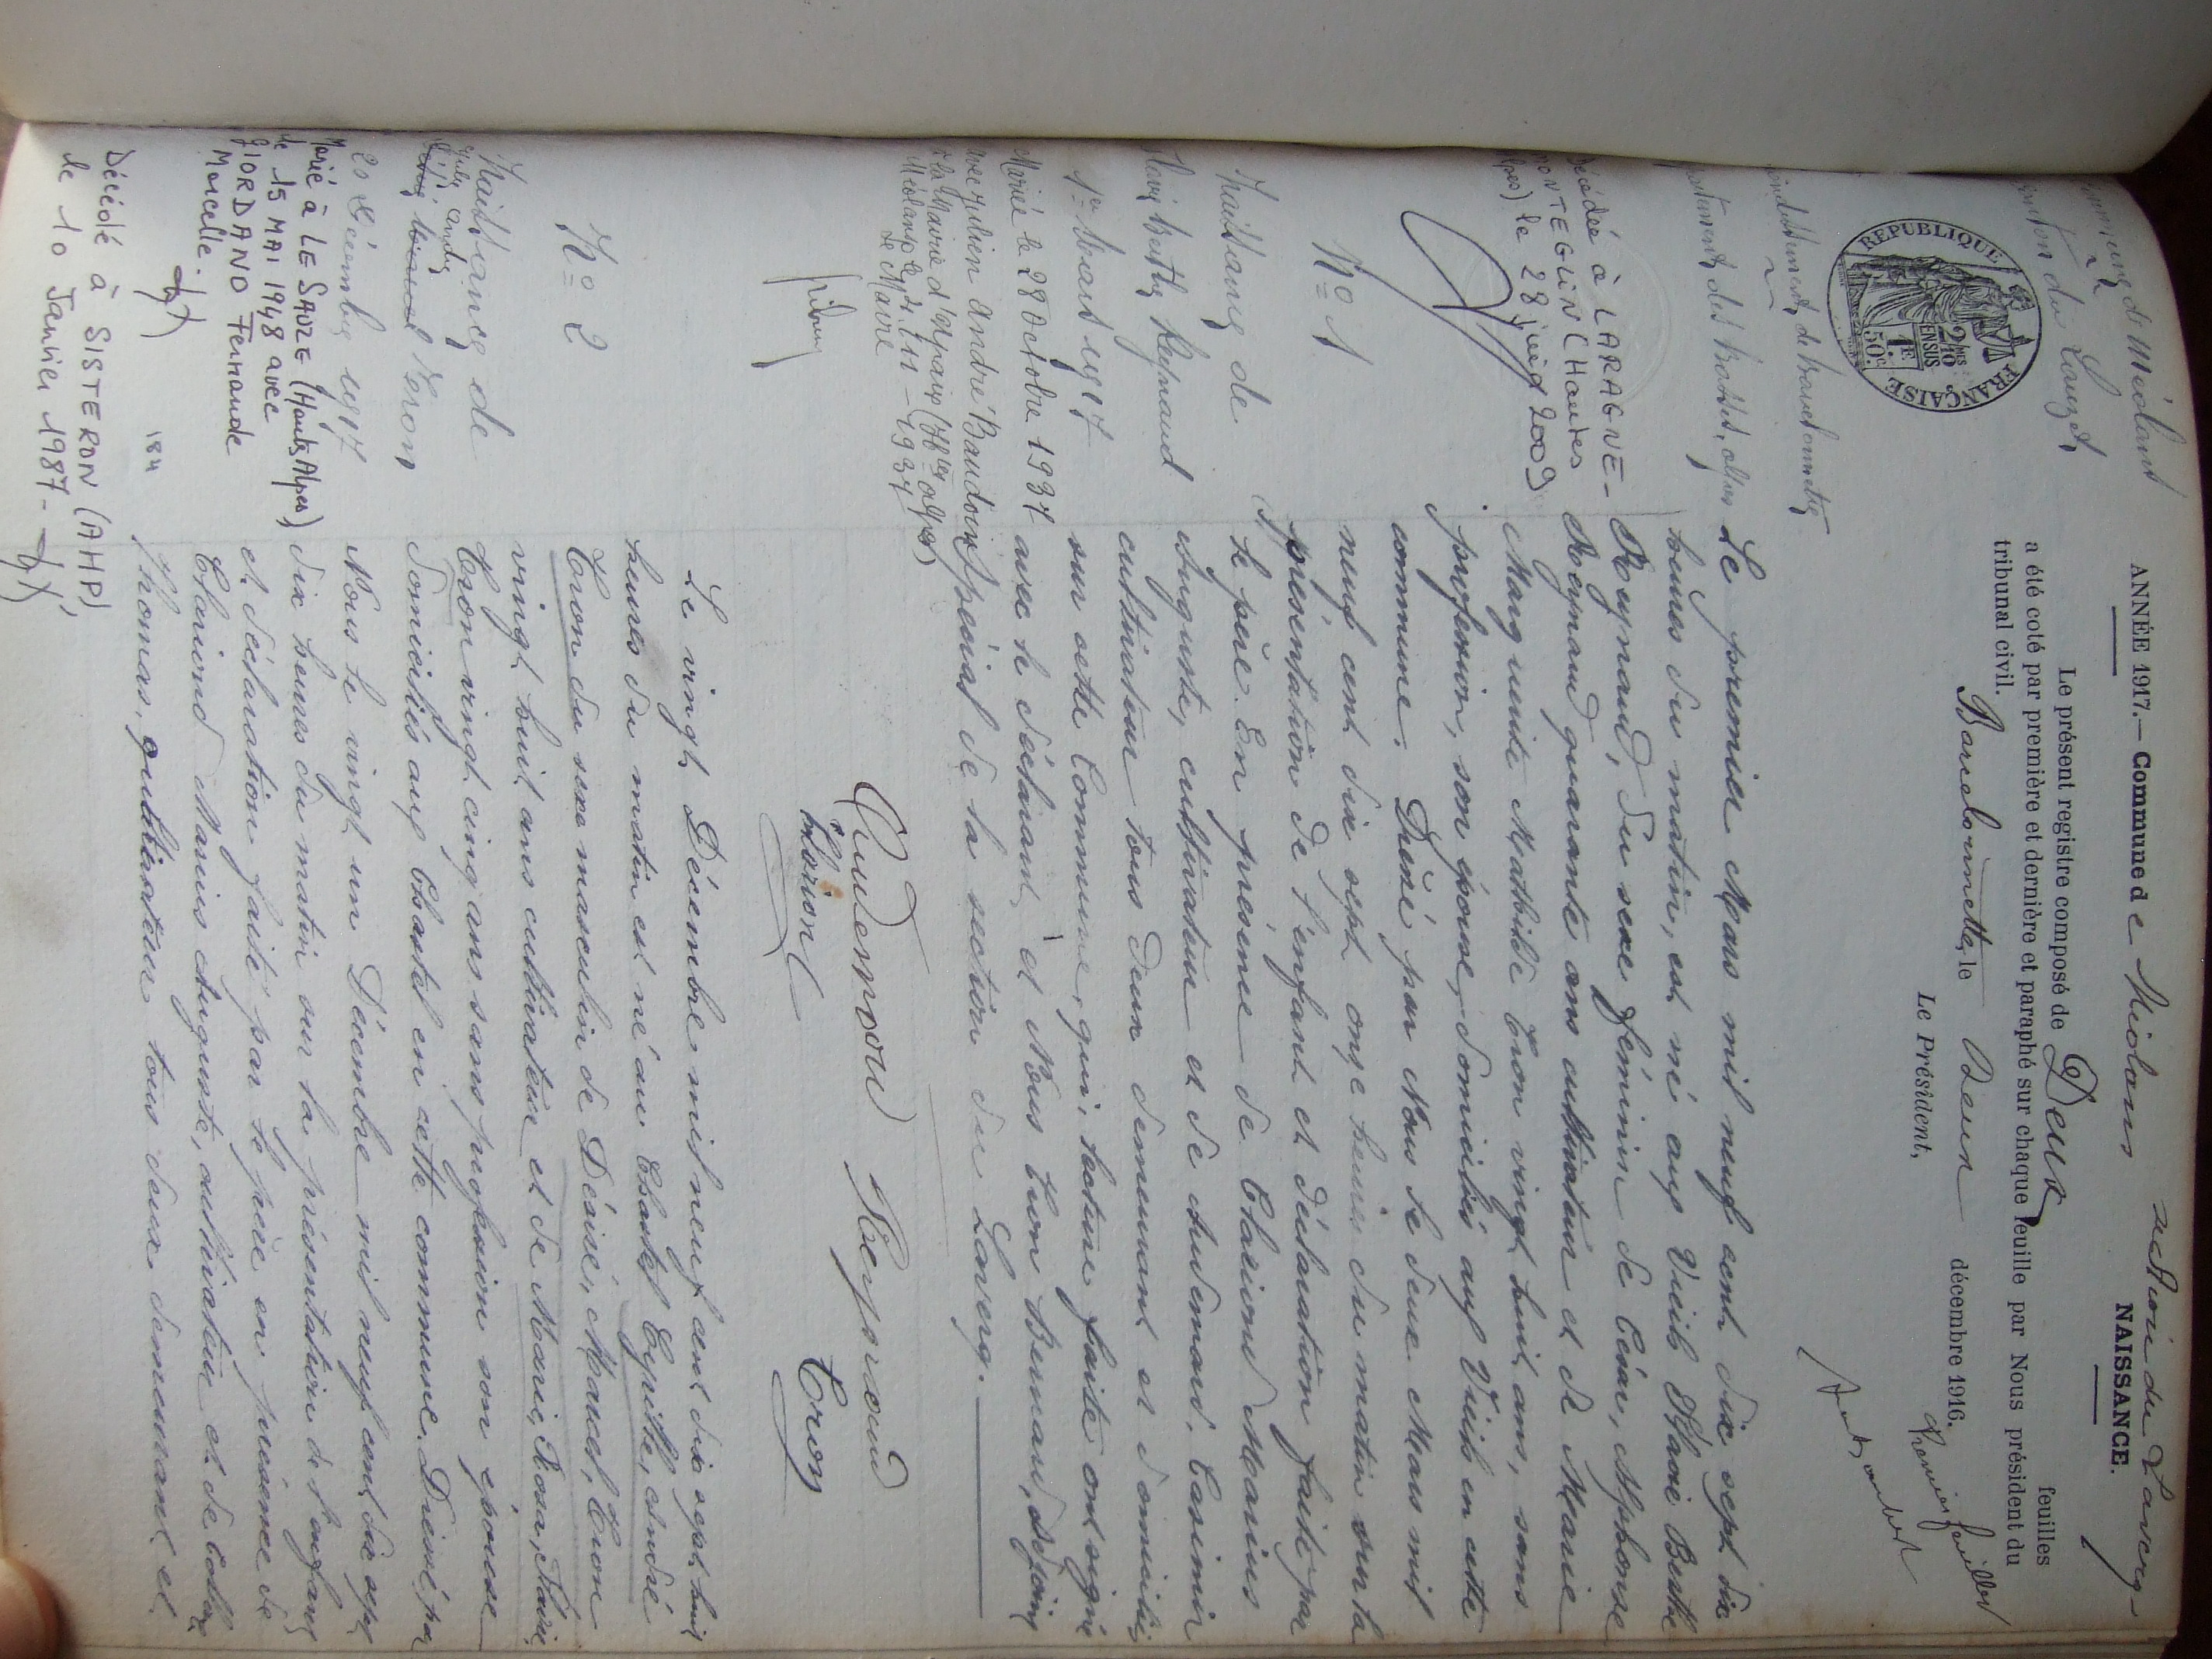 ANNÉE 1917.— Commune de Miolans section du Laverq
NAISSANCE.
Le présent registre composé de Deux feuilles
a été coté par première et dernière et paraphé sur chaque feuille par Nous président du
tribunal civil.
Barcelonnette, le Deux décembre 1916.
Le Président,
Commune de Méolans
Canton du Lauzet
arrondissement de Barcelonnette
département des Basses-Alpes
RÉPUBLIQUE FRANÇAISE
2/10 MES
EN SUS
1F 50C
Décédée à LARAGNE-
MONTEGLIN (Hautes
Alpes) le 28 juin 2009
No 1
Naissance de
Flavie Berthe Reynaud
1er Mars 1917
Mariée le 28 Octobre 1937
avec Julien André Baudoin
à la Mairie d'Upaix (Htes Alpes)
Méolans le 11-1937
Le Maire
Le premier Mars mil neuf cent dix sept dix
heures du matin, est né aux Vieils Flavie Berthe
Reynaud, du sexe féminin de César, Alphonse
Reynaud quarante ans cultivateur et de Marie
Marguerite Mathilde Tron vingt huit ans, sans
profession, son épouse, domiciliés aux Vieils en cette
commune. Dressé par Nous le deux Mars mil
neuf cent dix sept onze heures du matin sur la
présentation de l'enfant et déclaration faite par
le père. En présence de Clariond Marius
Auguste, cultivateur et de Audemard, Casimir
cultivateur tous deux demeurant et domiciliés
sur cette Commune, qui, lecture faite ont signé
avec le déclarant, et Nous Tron Bernard, adjoint
Spécial de la section du Laverq.
Audemard Reynaud
Clariond Tron
No 2
Naissance de
Tron
20 Décembre 1917
Marié à LE SAUZE (Hautes Alpes)
le 15 MAI 1948 avec
GIORDANO Fernande
Marcelle.
184
Décédé à SISTERON (AHP)
le 10 Janvier 1987-
Le vingt Décembre mil neuf cent dix sept huit
heures du matin est né au Chastel Cyrille, André
Tron du sexe masculin de Désiré, Marcel, Tron
vingt huit ans cultivateur et de Marie, Rosa, Flavie
Tron vingt cinq ans sans profession son épouse
domiciliés aux Chastel en cette commune. Dressé par
Nous le vingt un Décembre mil neuf cent dix sept
dix heures du matin sur la présentation de l'enfant
et déclaration faite par le père en présence de
Clariond Marius Auguste, cultivateur et de
Thomas, cultivateur tous deux demeurant et